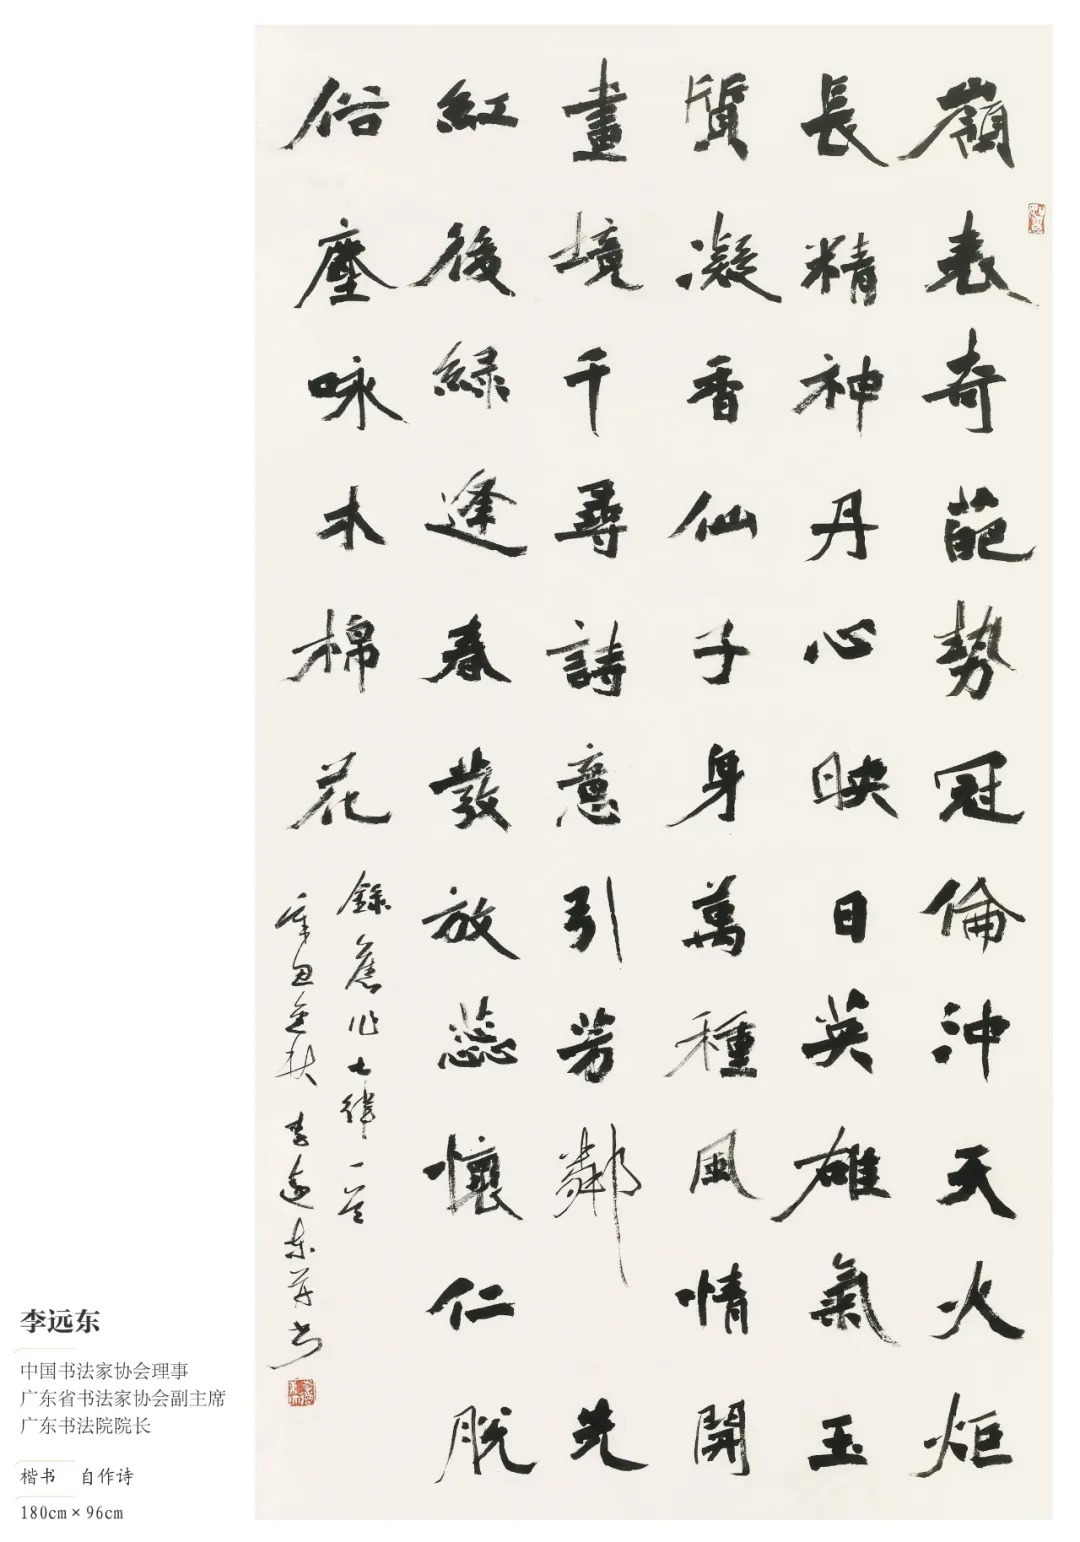 嶺表奇葩勢冠倫沖天火炬
長精神丹心映日英雄氣玉
質凝香仙子身萬種風情開
畫境千尋詩意引芳鄰先
紅後綠逢春發放蕊懷仁脫
俗塵咏木棉花
錄舊作七律一首
辛丑金秋 李遠東并書
李远东
中国书法家协会理事
广东省书法家协会副主席
广东书法院院长
楷书 自作诗
180cm × 96cm